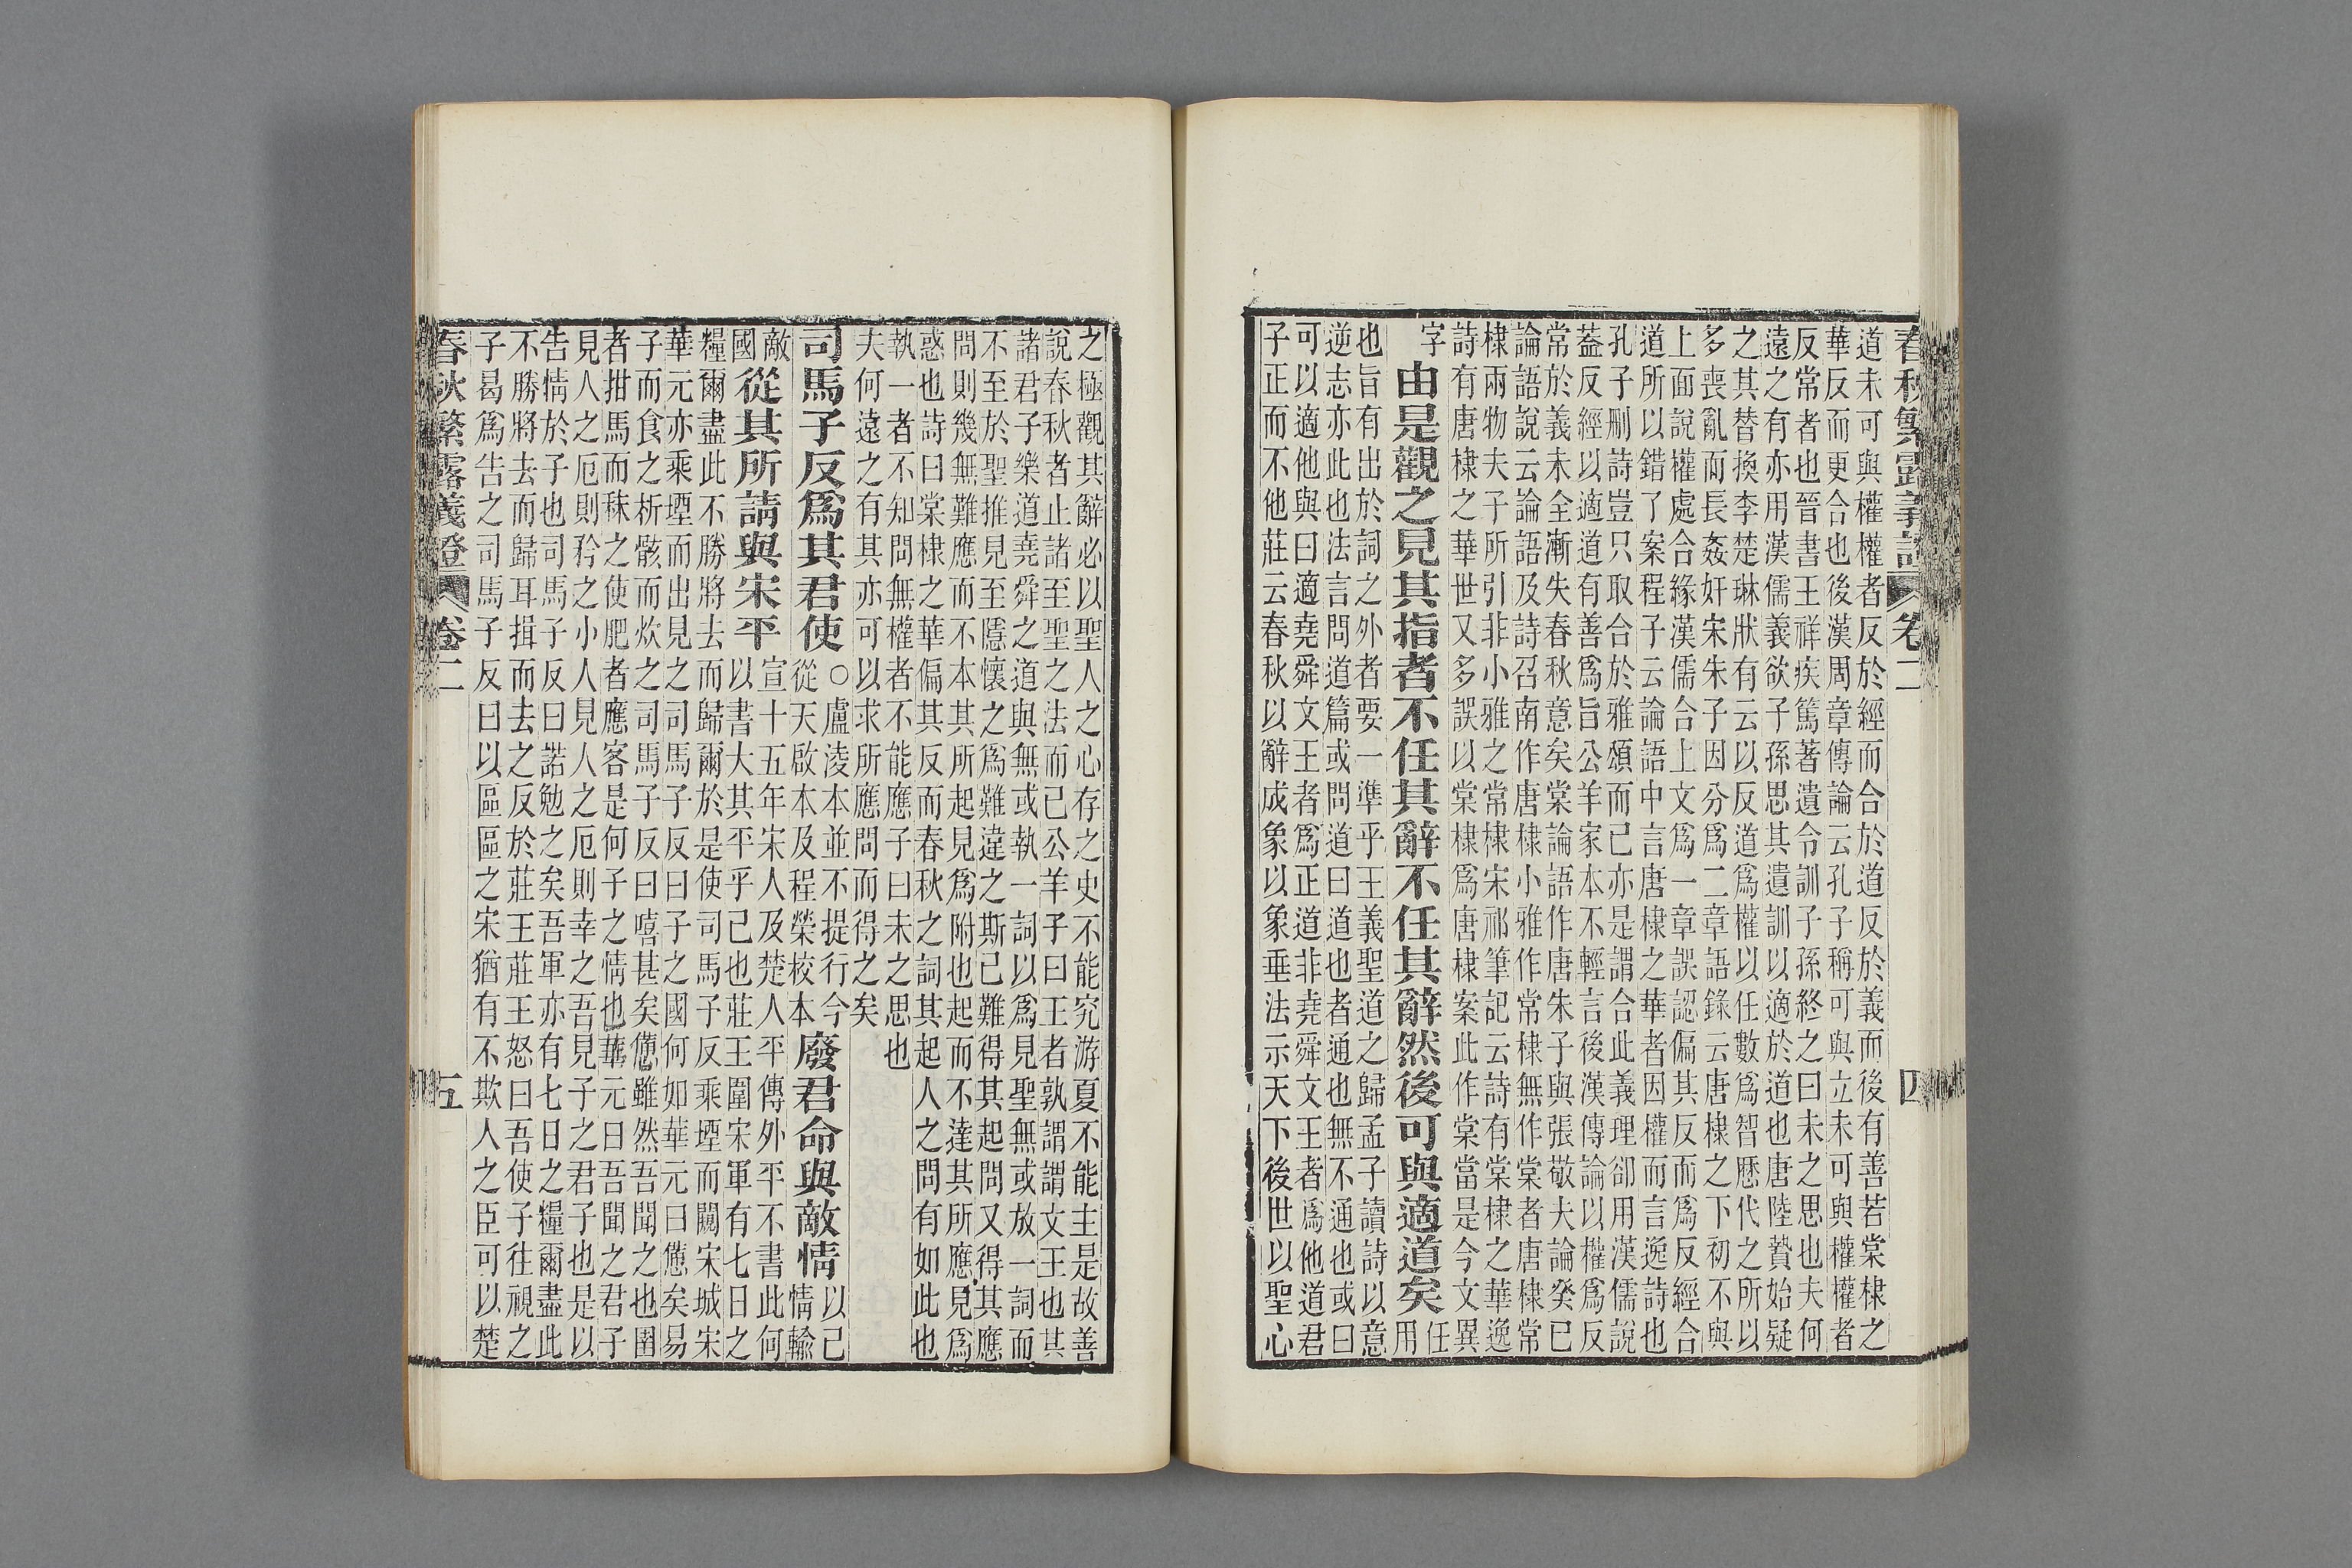 春秋繁露義證 卷二 四
道未可與權權者反於經而合於道反於義而後有善若棠棣之
華反而更合也後漢周章傳論云孔子稱可與立未可與權權者
反常者也晉書王祥疾篤著遺令訓子孫終之曰未之思也夫何
遠之有亦用漢儒義欲子孫思其遺訓以適於道也唐陸贄始疑
之其替換李楚琳狀有云以反道爲權以任數爲智歷代之所以
多喪亂而長姦奸宋朱子因分爲二章語錄云唐棣之下初不與
上面說權處合緣漢儒合上文爲一章誤認偏其反而爲反經合
道所以錯了案程子云論語中言唐棣之華者因權而言逸詩也
孔子刪詩豈只取合於雅頌而已亦是謂合此義理卻用漢儒說
蓋反經以適道有善爲旨公羊家本不輕言後漢傳論以權爲反
常於義未全漸失春秋意矣棠論語作唐朱子與張敬夫論癸巳
論語說云論語及詩召南作唐棣小雅作常棣無作棠者唐棣常
棣兩物夫子所引非小雅之常棣宋祁筆記云詩有棠棣之華逸
詩有唐棣之華世又多誤以棠棣爲唐棣案此作棠當是今文異
字
由是觀之見其指者不任其辭不任其辭然後可與適道矣
任
用
也旨有出於詞之外者要一準乎王義聖道之歸孟子讀詩以意
逆志亦此也法言問道篇或問道曰道也者通也無不通也或曰
可以適他與曰適堯舜文王者爲正道非堯舜文王者爲他道君
子正而不他莊云春秋以辭成象以象垂法示天下後世以聖心
之極觀其辭必以聖人之心存之史不能究游夏不能主是故善
說春秋者止諸至聖之法而已公羊子曰王者孰謂謂文王也其
諸君子樂道堯舜之道與無或執一詞以爲見聖無或放一詞而
不至於聖推見至隱懷之爲難違之斯已難得其起問又得其應
問則幾無難應而不本其所起見爲附也起而不達其所應見爲
惑也詩曰棠棣之華偏其反而春秋之詞其起人之問有如此也
執一者不知問無權者不能應子曰未之思也
夫何遠之有其亦可以求所應問而得之矣
司馬子反爲其君使
○盧淩本並不提行今
從天啟本及程榮校本
廢君命與敵情
以己
情輸
敵
國
從其所請與宋平
宣十五年宋人及楚人平傳外平不書此何
以書大其平乎己也莊王圍宋軍有七日之
糧爾盡此不勝將去而歸爾於是使司馬子反乘堙而闚宋城宋
華元亦乘堙而出見之司馬子反曰子之國何如華元曰憊矣易
子而食之析骸而炊之司馬子反曰嘻甚矣憊雖然吾聞之也圍
者拑馬而秣之使肥者應客是何子之情也華元曰吾聞之君子
見人之厄則矜之小人見人之厄則幸之吾見子之君子也是以
告情於子也司馬子反曰諾勉之矣吾軍亦有七日之糧爾盡此
不勝將去而歸耳揖而去之反於莊王莊王怒曰吾使子往視之
子曷爲告之司馬子反曰以區區之宋猶有不欺人之臣可以楚
春秋繁露義證 卷二 五